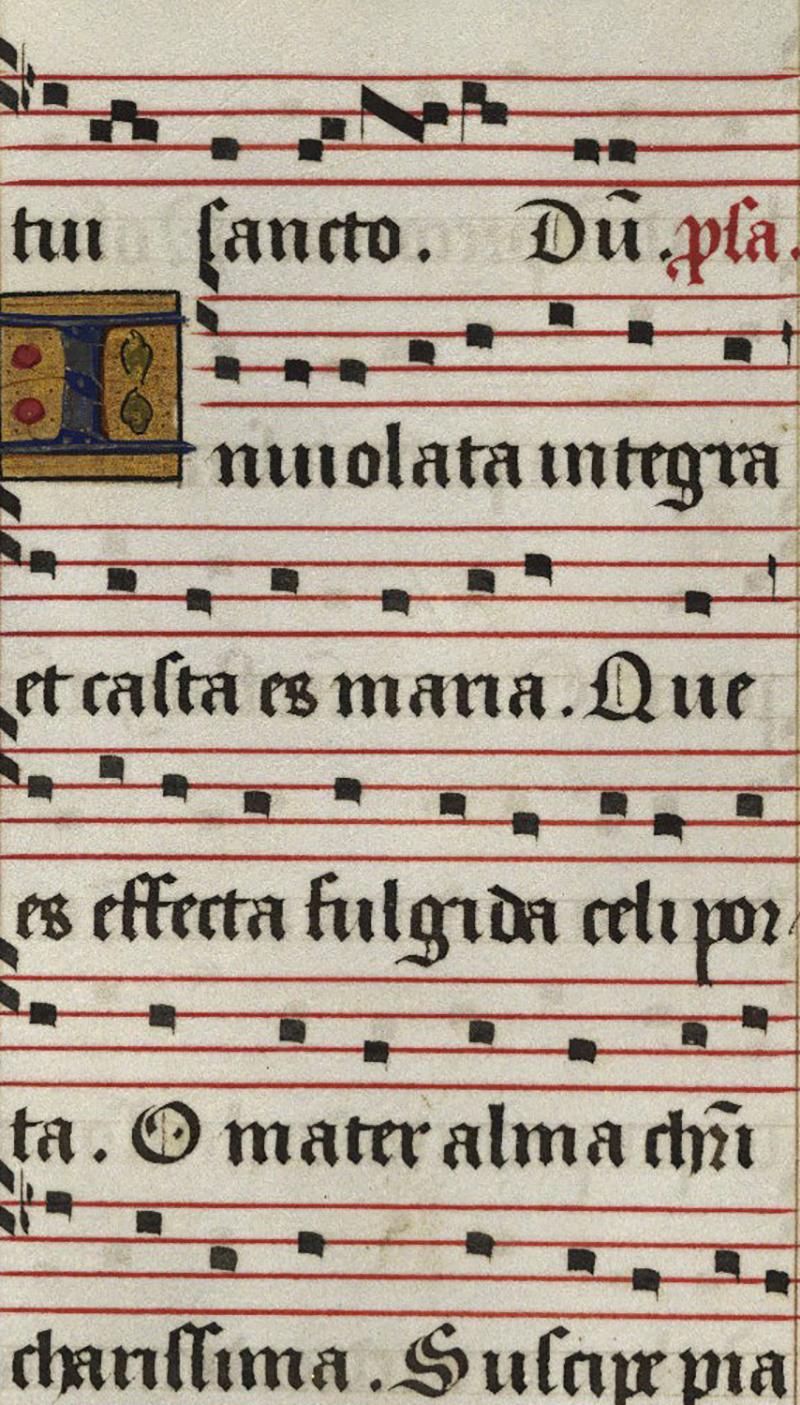 tui sancto. Dũ. psa.
Inuiolata integra
et casta es maria. Que
es effecta fulgida celi por
ta. O mater alma chri̅
charissima. Suscipe pia